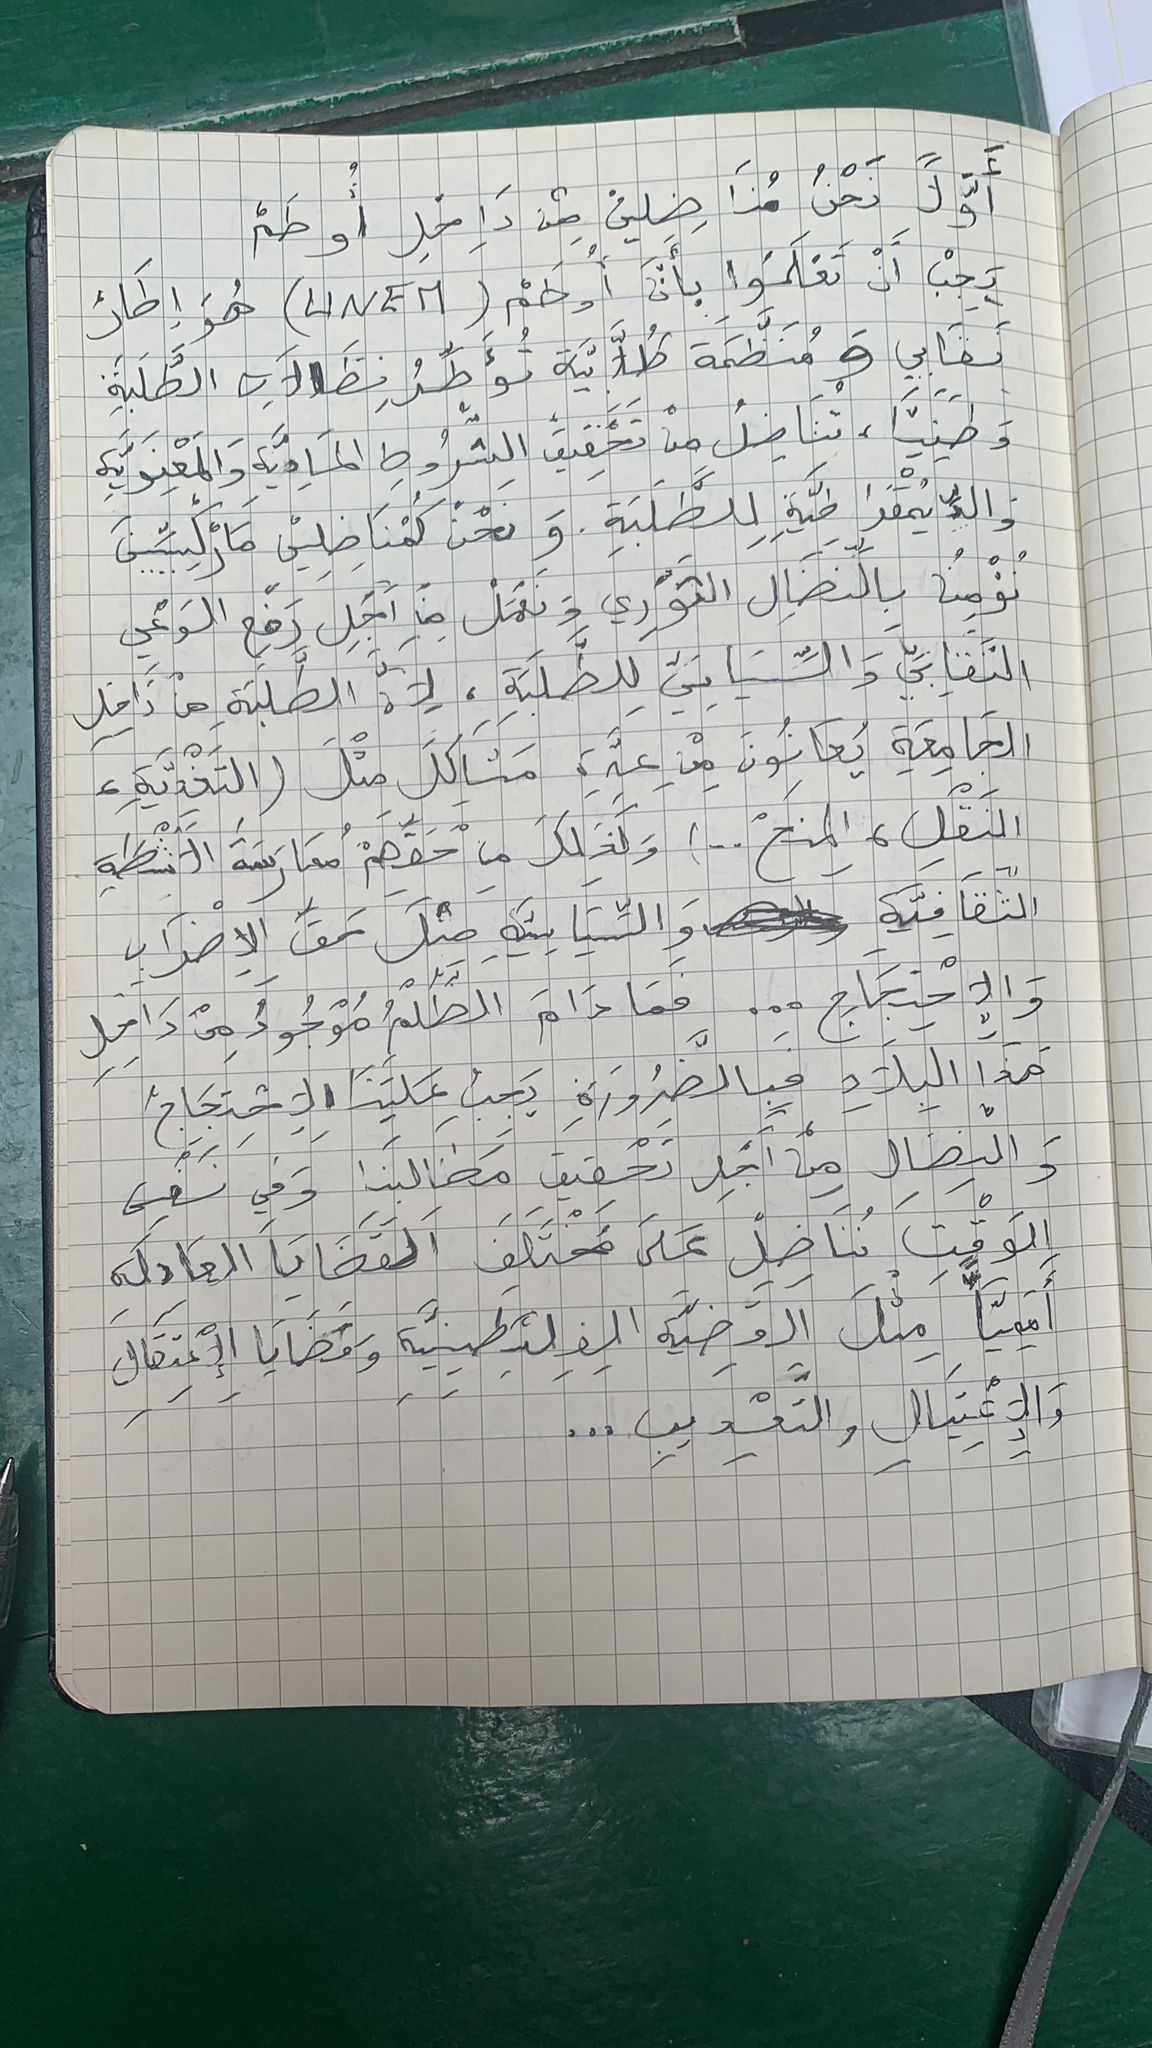 أَوَّلاً نَحْنُ مُنَاضِلِينْ مِنْ دَاخِلِ أُوطَمْ
يَجِبْ أَنْ تَعْلَمُوا بِأَنَّ أُوطَمْ (UNEM) هُوَ إِطَارْ
نَقَابِي وَ مُنَظَّمَة طُلاَّبِيَّة تُؤَطِّرُ نِظَالاَتِ الطَّلَبَةِ
وَطَنِيًّا، تُنَاضِلُ مِنْ تَحْقِيقِ الشُّرُوطِ المَادِيَّةِ وَالمَعْنَوِيَّةِ
وَالدِّيمُقْرَاطِيَّةِ لِلطَّلَبَةِ. وَ نَحْنُ كَمُنَاضِلِينْ مَارْكِسِيِّينَ
نُؤْمِنُ بِالنِّضَالِ الثَّوْرِي وَنَعْمَلْ مِنْ أَجْلِ رَفْعِ الوَعْيِ
النَّقَابِيِّ وَالسِّيَاسِيِّ لِلطَّلَبَةِ، لِأَنَّ الطَّلَبَةِ مِنْ دَاخِلِ
الجَامِعَةِ يُعَانُونَ مِنْ عِدَّةِ مَشَاكِلَ مِثْلَ (التَّغْذِيَّةِ،
النَّقْلِ، المِنَحْ ..) وَكَذَلِكَ مِنْ حَقِّهِمْ مُمَارَسَةُ الأَنْشِطَةِ
الثَّقَافِيَّةِ وَالسِّيَاسِيَّةِ مِثْلَ حَقِّ الإِضْرَابِ
وَالإِحْتِجَاجِ ... فَمَا دَامَ الظُّلْمُ مَوْجُودُ مِنْ دَاخِلِ
هَذَا البِلاَدِ فَبِالضَّرُورَةِ يَجِبُ عَلَيْنَا الإِحْتِجَاجُ
وَالنِّضَالِ مِنْ أَجْلِ تَحْقِيقِ مَطَالِبِنَا وَفِي نَفْسِ
الوَقْتِ نُنَاضِلْ عَلَى مُخْتَلَفِ القَضَايَا العَادِلَةِ
أُمَمِيًّا مِثْلَ القَضِيَّةِ الفِلِسْطِينِيَّةِ وَقَضَايَا الإِعْتِقَالِ
وَالإِغْتِيَالِ والتَّعْذِيبِ ...